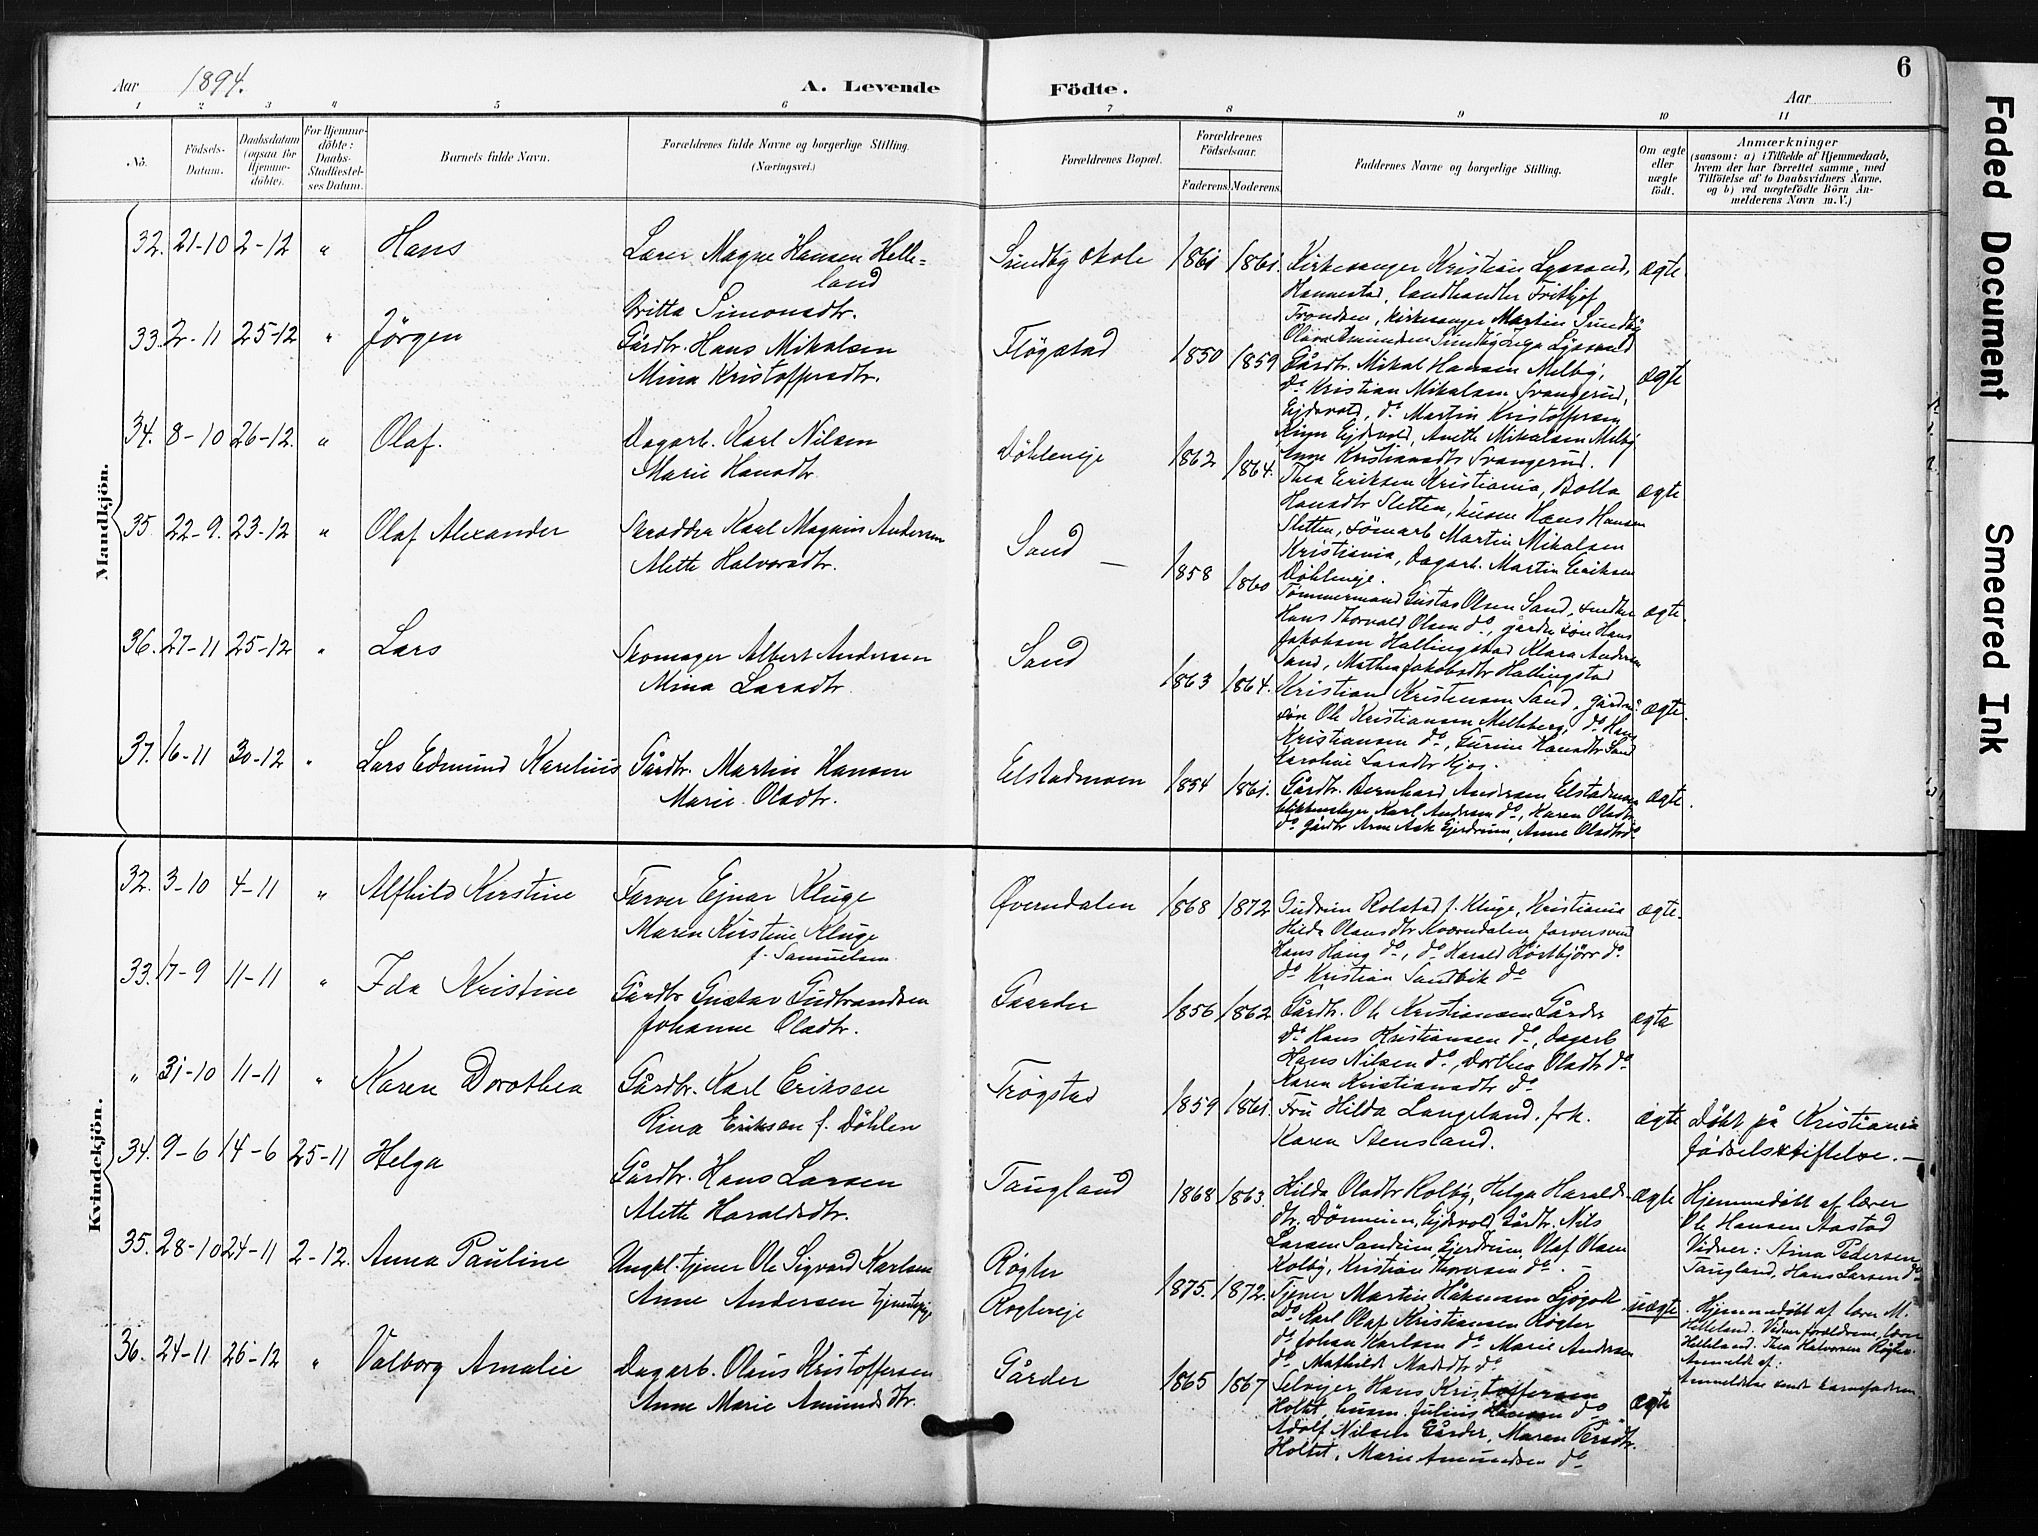 Aar 1894.
A. Levende
Födte.
Aar
6
1 2 3 4 5 6 7 8 9 10 11
No.
Födsels-
Datum.
Daabsdatum
(ogsaa for
Hjemme-
döbte).
For Hjemme-
döbte:
Daabs-
Stadfestel-
ses Datum.
Barnets fulde Navn.
Forældrenes fulde Navne og borgerlige Stilling.
(Næringsvei.)
Forældrenes Bopæl.
Forældrenes
Födselsaar.
Faderens. Moderens.
Faddernes Navne og borgerlige Stilling.
Om ægte
eller
uægte
födt.
Anmærkninger
(saasom: a) i Tilfælde af Hjemmedaab,
hvem der har forrettet samme, med
Tilföielse af to Daabsvidners Navne,
og b) ved uægtefödte Börn An-
melderens Navn m. V.)
Mandkjön.
32. 21-10 2-12 " Hans
Lærer Magne Hansen Helle=
land
Britta Simonsdtr.
Sundby skole 1861 1861.
Kirkesanger Kristian Lyssand,
Hannestad, landhandler Frithjof
Trondsen, kirkesanger Martin Sundby
ægte.
33. 2-11 25-12 " Jörgen
Gårdbr. Hans Mikalsen
Mina Kristoffersdtr.
Flögstad 1850 1859
Gårdbr. Mikal Hansen Melby,
do Kristian Mikalsen Svangerud,
Ejdsvold, do Martin Kristoffersen
Ejdsvold, Anette Mikalsen Melby
Kristiansdtr Svangerud.
ægte
34. 8-10 26-12. " Olaf.
Dagarb. Karl Nilsen
Marie Hansdtr
Döhleneje 1862 1864.
Thea Eriksen Kristiania, Bolla
Hansdtr Sletten, husm Hans Hansen
Sletten, sömarb Martin Mikalsen
Kristiania, Dagarb. Martin Eriksen
Döhleneje.
ægte
35. 22-9. 23-12 " Olaf Alexander
Skrædder Karl Magnus Andersen
Alette Halvorsdtr.
Sand 1858 1860
Tömmermand Gustav Olsen Sand, snedker
Hans Thorvald Olsen do, gårdm. sön Hans
Jakobsen Hallingstad Klara Andersen
Sand, Mathea Jakobsdtr Hallingstad
ægte.
36. 27-11 25-12 " Lars
Skomager Albert Andersen
Mina Larsdtr.
Sand 1863 1864.
Kristian Kristensen Sand, gårdm.
sön Ole Kristiansen Melleberg, do Hans
Kristiansen do, Gurine Hansdtr Sand
Karoline Larsdtr Kjos.
ægte.
37. 16-11 30-12 " Lars Edmund Karelius
Gårdbr. Martin Hansen
Marie Olsdtr.
Elstadmoen 1854 1861.
Gårdbr. Bernhard Andersen Elstadmoen
blikkenslager Karl Andersen do, Karen Olsdtr
do Gårdbr Arne Ask Gjerdrum, Anne Olsdtr do
ægte.
Kvindekjön.
32. 3-10 4-11 " Alfhild Kirstine
Farver Ejnar Kluge
Maren Kirstine Kluge
f. Samuelsen.
Øverndalen 1868 1872
Gudrun Rolstad f. Kluge, Kristiania
Hilda Olausdtr Kværndalen, farversvend
Hans Haug do, do Harald Hörtbjörr do
do Kristian Sandbik do
ægte.
33. 17-9 11-11 " Ida Kristine
Gårdbr Gustav Gudbrandsen
Johanne Olsdtr.
Gaarder 1856 1862
Gårdbr. Ole Kristiansen Gårder
do Hans Kristiansen do, dagarb
Hans Nilsen do, Dorthea Olsdtr do
Karen Kristiansdtr do
ægte
" 31-10 11-11 " Karen Dorothea
Gårdbr. Karl Eriksen
Rina Eriksen f. Döhlen
Trögstad 1859 1861.
Fru Hilda Langeland, frk.
Karen Stensland.
ægte
Döbt på Kristiania
födselsstiftelse. —
34. 9-6 14-6 25-11 Helga
Gårdbr. Hans Larsen
Alette Haraldsdtr.
Taugland 1868 1863.
Hilda Olsdtr Kolby, Helga Haralds-
dtr. Dönnum, Ejdsvold, Gårdbr. Nils
Larsen Sandum, Gjerdrum, Olaf Olsen
Kolby, Kristian Thoresen do. —
ægte
Hjemmedöbt af lærer
Ole Hansen Aastad
Vidner: Stina Pedersen
Taugland, Hans Larsen do
35. 28-10 24-11 2-12. Anna Pauline
Ungkl. tjener Ole Sigvard Karlsen
Anne Andersen tjenestepige
Rögler
Röglereje 1875. 1872.
Tjener Martin Håkensen Sjögolt
do Karl Olaf Kristiansen Rögler
do Johan Karlsen do Marie Andersen
do Mathilde Madsdtr do
uægte
Hjemmedöbt af lærer M.
Helleland. Vidner forældrene, lærer
Helleland. Thea Halvorsen Rögler.
Anmeldt af:
Anmeldelse sendt barnefaderen.
36. 24-11 26-12 " Valborg Amalie
Dagarb. Olaus Kristoffersen
Anne Marie Amundsdtr.
Gårder 1865 1867
Selvejer Hans Kristoffersen
Holtet, husm. Julius Hansen do
Adolf Nilsen Gårder, Maren Persdtr.
Holtet, Marie Amundsen do
ægte
Faded Document
Smeared Ink